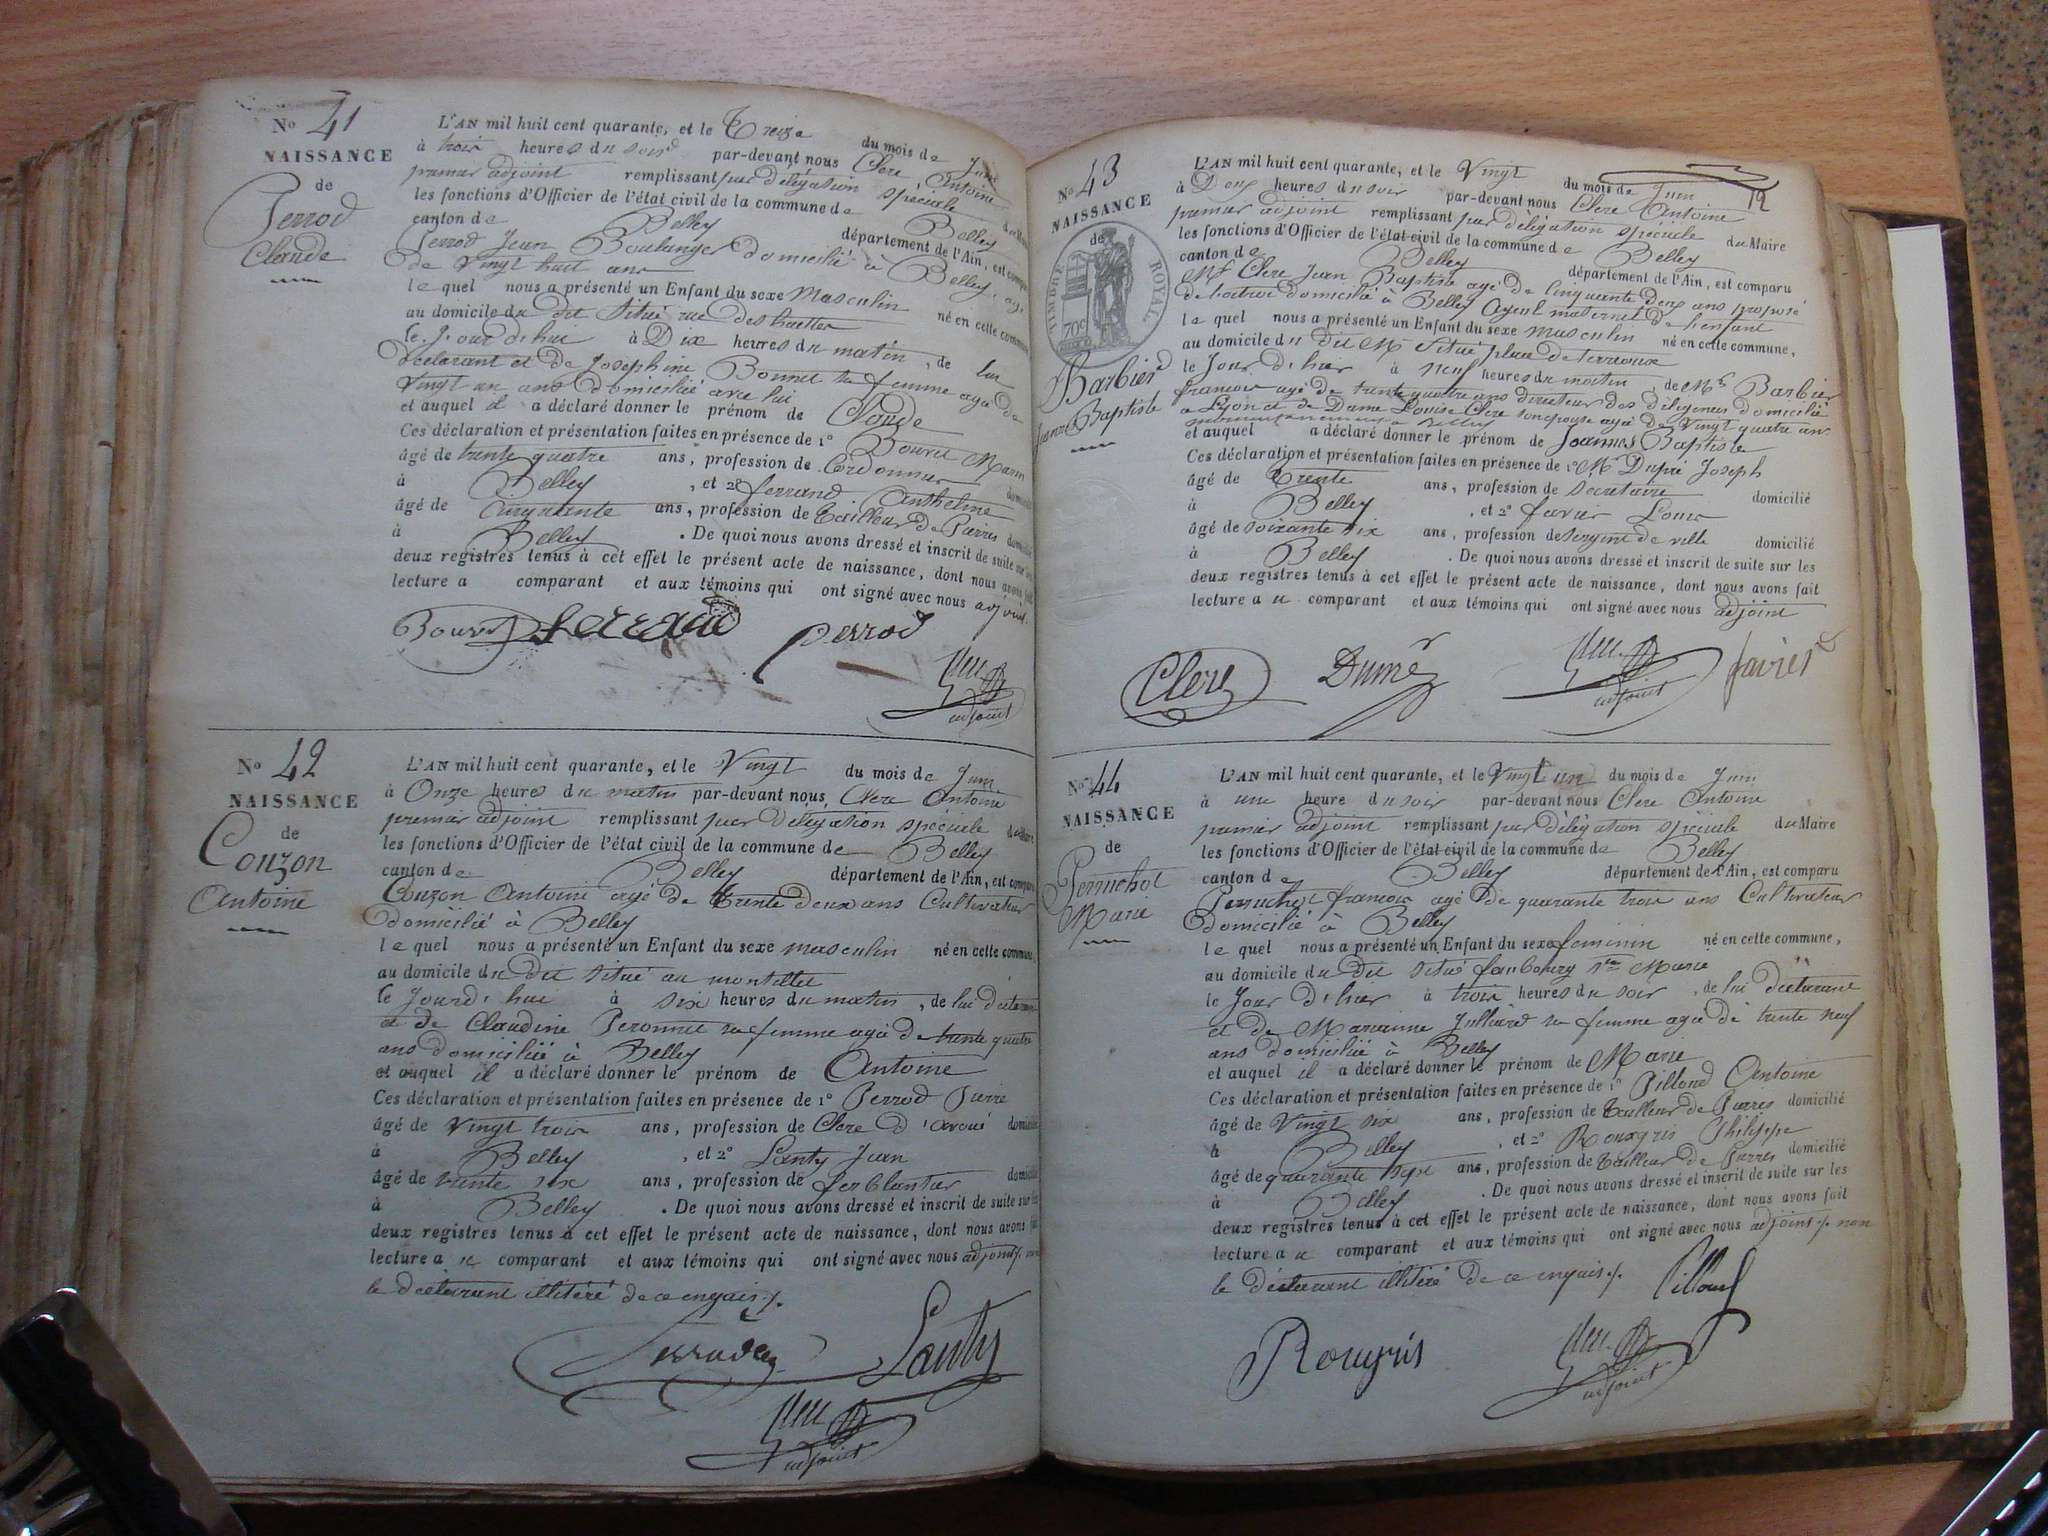 No 41
NAISSANCE
de
Perrod
Claude
L'AN mil huit cent quarante, et le Treize du mois de Juin
à trois heures du soir par-devant nous Clerc Antoine
premier adjoint remplissant par délégation spéciale du Maire
les fonctions d'Officier de l'état civil de la commune de Belley
canton de Belley département de l'Ain, est comparu
Perrod Jean Boulanger domicilié à Belley, agé
de vingt huit ans
lequel nous a présenté un Enfant du sexe Masculin né en cette commune
au domicile du dit situé rue des
le Jour d'hui à Dix heures du matin, de lui
déclarant et de Josephine Bonnet sa femme agée de
Vingt un ans domiciliée avec lui
et auquel il a déclaré donner le prénom de Claude
Ces déclaration et présentation faites en présence de 1o Bouvet Marin
âgé de trente quatre ans, profession de Cordonnier domicilié
à Belley, et 2o ferrand Anthelme
âgé de Cinquante ans, profession de Tailleur de Pierres domicilié
à Belley. De quoi nous avons dressé et inscrit de suite sur les
deux registres tenus à cet effet le présent acte de naissance, dont nous avons fait
lecture a comparant et aux témoins qui ont signé avec nous adjoint.
Bouvet ferrand perrod
adjoint
No 42
NAISSANCE
de
Couzon
Antoine
L'AN mil huit cent quarante, et le Vingt du mois de Juin
à Onze heures du matin par-devant nous, Clerc Antoine
premier adjoint remplissant par délégation spéciale du Maire
les fonctions d'Officier de l'état civil de la commune de Belley
canton de Belley département de l'Ain, est comparu
Couzon Antoine agé de trente deux ans Cultivateur
domicilié à Belley
lequel nous a présenté un Enfant du sexe masculin né en cette commune,
au domicile du dit situé au montillet
le Jourd'hui à six heures du matin, de lui déclarant
et de Claudine Peronnet sa femme agée de trente quatre
ans domiciliée à Belley
et auquel il a déclaré donner le prénom de Antoine
Ces déclaration et présentation faites en présence de 1o Perrod Pierre
âgé de vingt trois ans, profession de Clerc d'avoué domicilié
à Belley, et 2o Lanty Jean
âgé de trente six ans, profession de ferblantier domicilié
à Belley. De quoi nous avons dressé et inscrit de suite sur les
deux registres tenus à cet effet le présent acte de naissance, dont nous avons fait
lecture au comparant et aux témoins qui ont signé avec nous adjoint non
le déclarant illitéré de ce enquis
Lanty
adjoint
12
No 43
NAISSANCE
de
TIMBRE ROYAL
70c
Barbier
Joannes Baptiste
L'AN mil huit cent quarante, et le Vingt du mois de Juin
à Deux heures du soir par-devant nous Clerc Antoine
premier adjoint remplissant par délégation spéciale du Maire
les fonctions d'Officier de l'état civil de la commune de Belley
canton de Belley département de l'Ain, est comparu
Mr Clerc Jean Baptiste agé de Cinquante deux ans préposé
de l'octroi domicilié à Belley Ayeul maternel de l'enfant
lequel nous a présenté un Enfant du sexe masculin né en cette commune,
au domicile du dit Mr situé place de terreaux
le Jour d'hier à neuf heures du matin, de Mr Barbier
francois agé de trente quatre ans directeur des diligences domicilié
a Lyon et de Dame Louise Clerc son epouse agée de vingt quatre ans
et auquel a déclaré donner le prénom de Joannes Baptiste
Ces déclaration et présentation faites en présence de 1o Mr Dupré Joseph
âgé de Trente ans, profession de secretaire domicilié
à Belley, et 2o favier Louis
âgé de soixante six ans, profession de sergent de ville domicilié
à Belley. De quoi nous avons dressé et inscrit de suite sur les
deux registres tenus à cet effet le présent acte de naissance, dont nous avons fait
lecture au comparant et aux témoins qui ont signé avec nous adjoint
Clerc favier
adjoint
No 44
NAISSANCE
de
Perruchot
Marie
L'AN mil huit cent quarante, et le Vingt un du mois de Juin
à une heure du soir par-devant nous Clerc Antoine
premier adjoint remplissant par délégation spéciale du Maire
les fonctions d'Officier de l'état civil de la commune de Belley
canton de Belley département de l'Ain, est comparu
Perruchot francois agé de quarante trois ans Cultivateur
domicilié à Belley
lequel nous a présenté un Enfant du sexe feminin né en cette commune,
au domicile du dit situé faubourg Ste Marie
le Jour d'hier à trois heures du soir, de lui déclarant
et de Marianne Julliard sa femme agée de trente neuf
ans domiciliée à Belley
et auquel il a déclaré donner le prénom de Marie
Ces déclaration et présentation faites en présence de 1o Pilloud Antoine
âgé de Vingt six ans, profession de Tailleur de Pierres domicilié
à Belley, et 2o Rougris Philippe
âgé de quarante sept ans, profession de Tailleur de Pierres domicilié
à Belley. De quoi nous avons dressé et inscrit de suite sur les
deux registres tenus à cet effet le présent acte de naissance, dont nous avons fait
lecture au comparant et aux témoins qui ont signé avec nous adjoint non
le déclarant illitéré de ce enquis. Pilloud
Rougris
adjoint